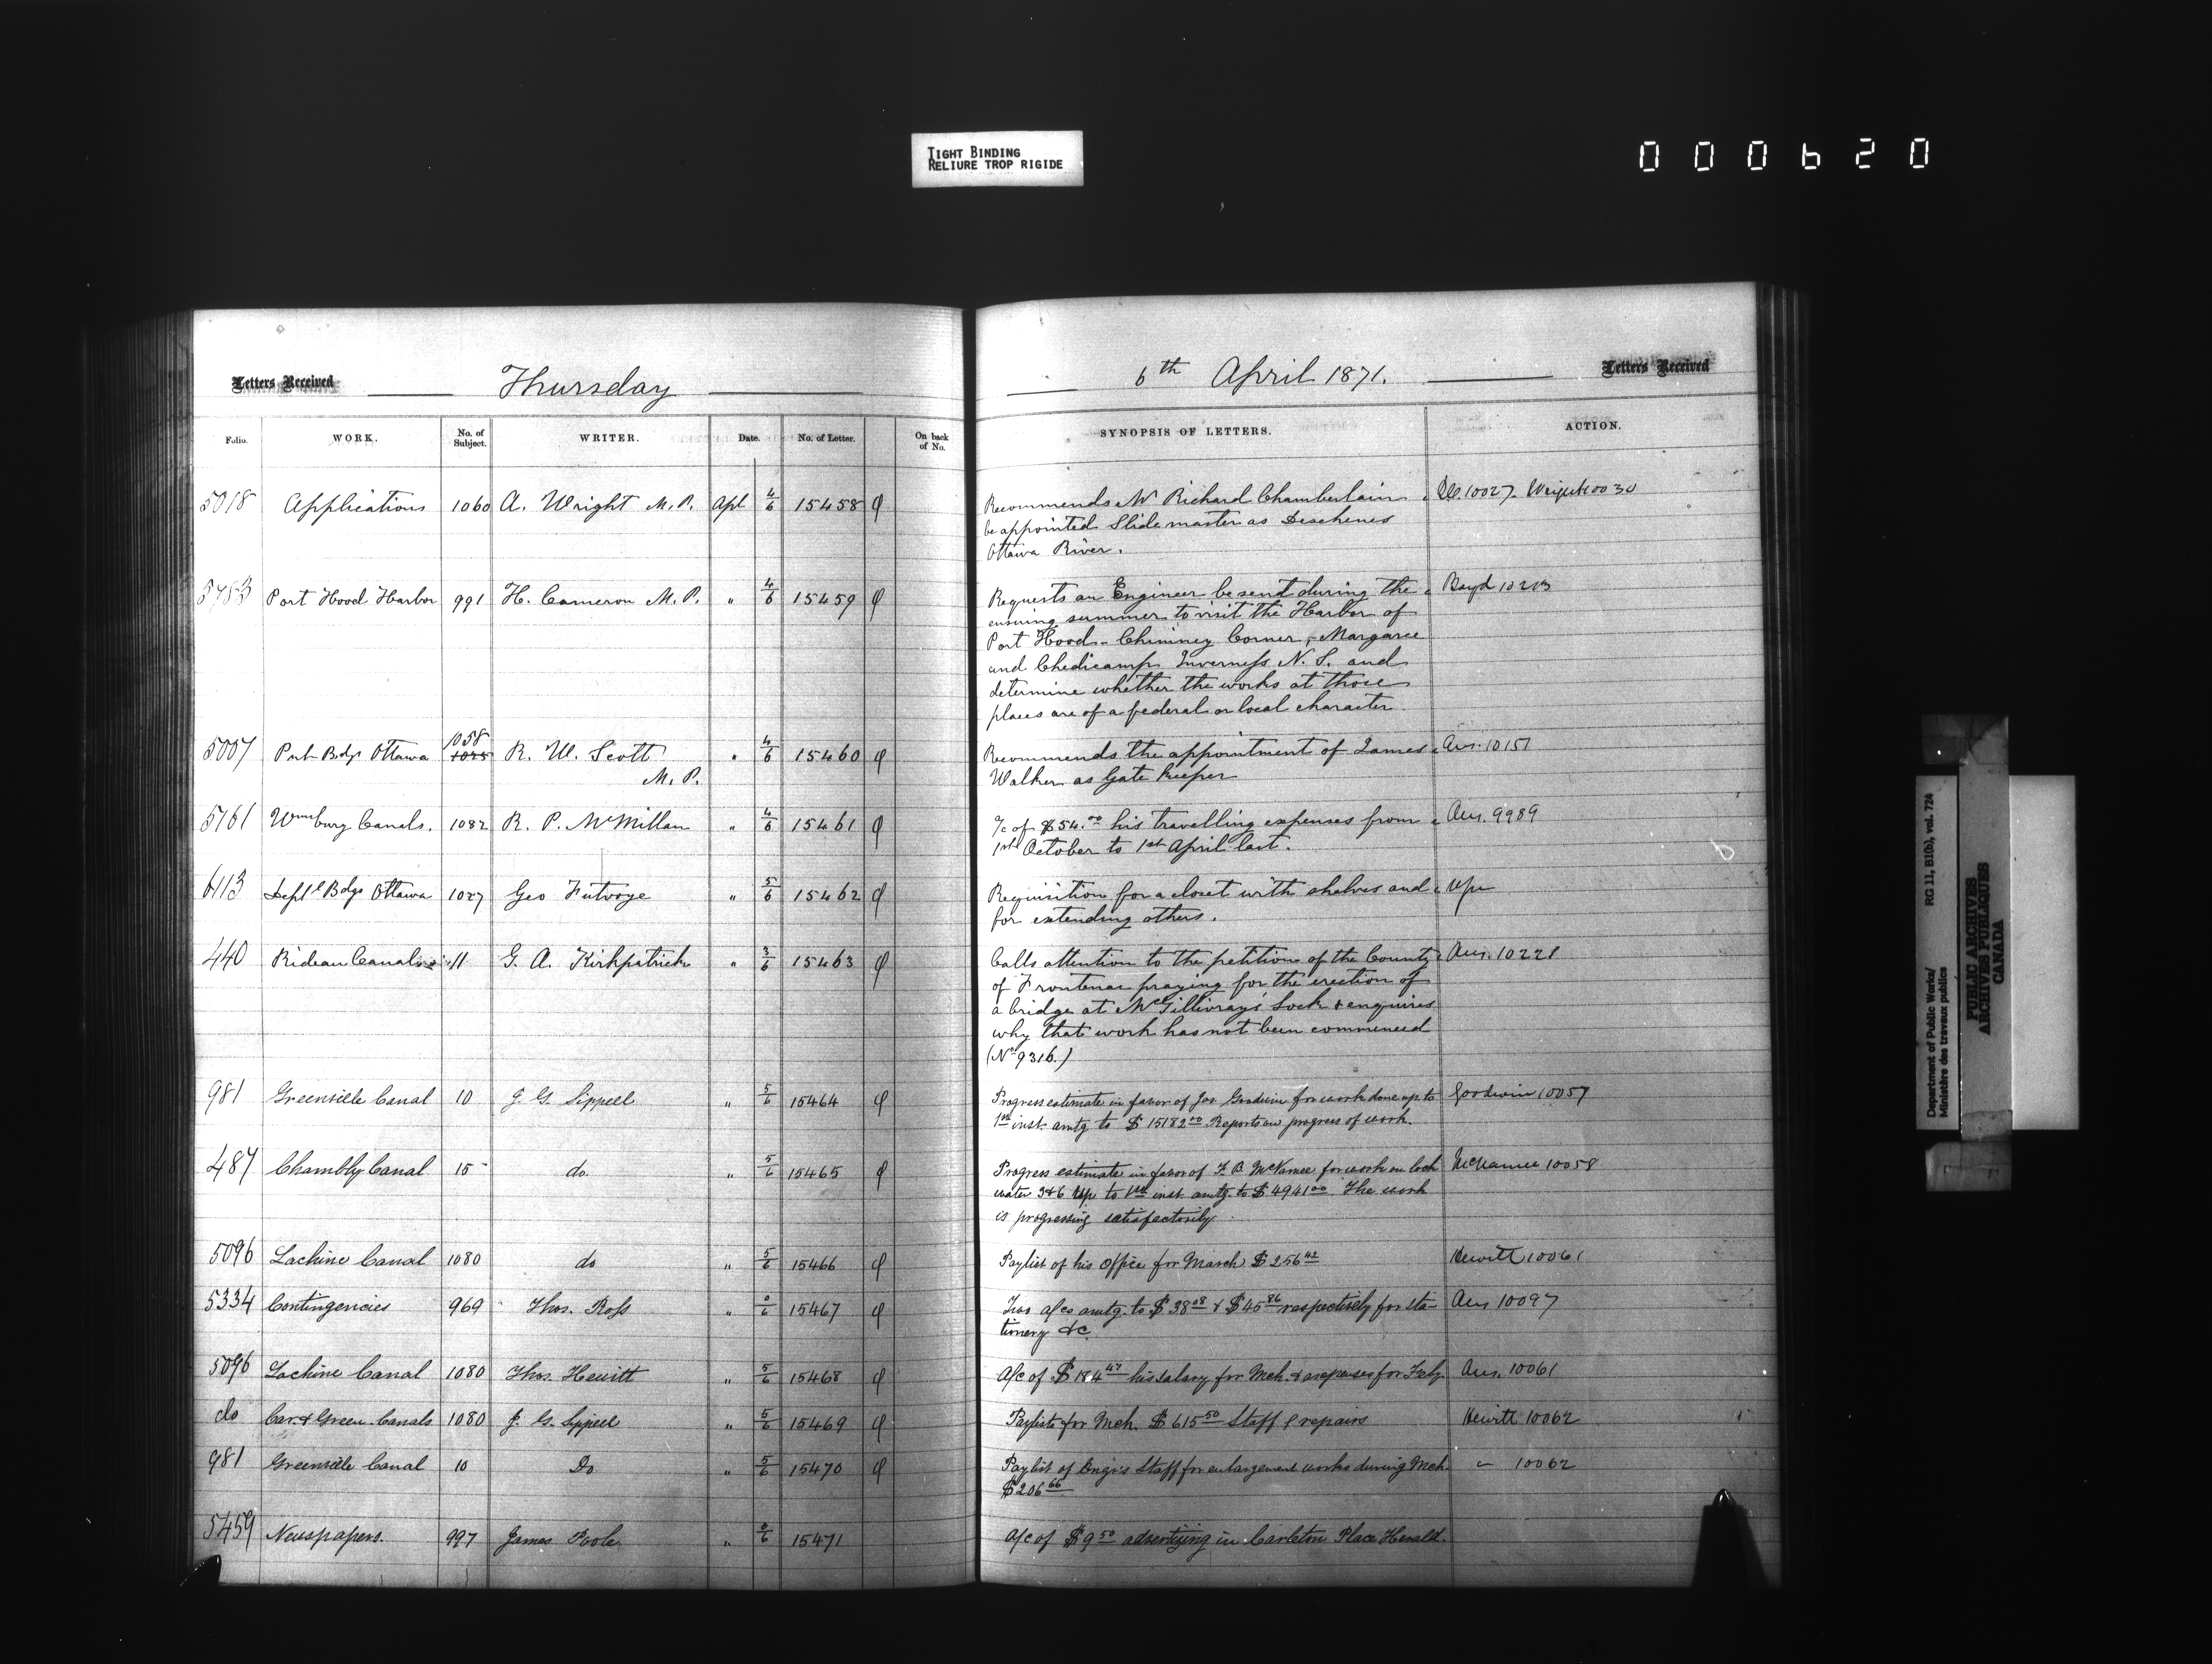 TIGHT BINDING
RELIURE TROP RIGIDE
000620
Letters Received
Thursday
6th April 1871.
Letters Received
Folio. WORK. No. of Subject. WRITER. Date. No. of Letter. On back of No. SYNOPSIS OF LETTERS. ACTION.
5018 Applications 1060 A. Wright M.P. Apl 4/6 15458 Recommends Mr Richard Chamberlain
be appointed Slide master as Deschenes
Ottawa River.
10027 Wright 10030
5753 Port Hood Harbor 991 H. Cameron M.P. " 4/6 15459 Requests an Engineer be send during the Boyd 10213
ensuing summer to visit the Harbor of
Port Hood - Chimney Corner, Margaree
and Chedicamp Inverness N.S. and
determine whether the works at those
places are of a federal or local character.
5007 Pub Bdgs Ottawa 1058 R. W. Scott " 4/6 15460 Recommends the appointment of James Ans. 10151
M.P. Walker as Gate Keeper
5161 Wmsburg Canals. 1082 R. P. McMillan " 4/6 15461 /c of $54.00 his travelling expenses from Ans. 9989
1st October to 1st April last.
6113 Deptl Bdgs Ottawa 1027 Geo Futvoye " 5/6 15462 Requisition for a closet with shelves and
for extending others.
440 Rideau Canal 11 G. A. Kirkpatrick " 3/6 15463 Calls attention to the petition of the County Ans. 10221
of Frontenac praying for the erection of
a bridge at McGillivray's Lock & enquires
why that work has not been commenced
(No 9316.)
981 Greenville Canal 10 J. G. Sippell " 5/6 15464 Progress estimate in favor of Jas. Goodwin for work done up to Goodwin 10057
1st inst. amtg to $15182.00 Reports on progress of work.
487 Chambly Canal 15 do. " 5/6 15465 Progress estimate in favor of F. B. McNamee for work on lock McNamee 10058
water 3&6 up to 1st inst. amtg. to $4941.00 The work
is progressing satisfactorily.
5096 Lachine Canal 1080 do " 5/6 15466 Paylist of his Office for March $256.42 Hewitt 10061
5334 Contingencies 969 Thos. Ross " 0/6 15467 Two a/cs amtg. to $38.08 & $45.86 respectively for sta- Ans 10097
tionery &c.
5096 Lachine Canal 1080 Thos. Hewitt " 5/6 15468 A/c of $184.47 his salary for Mch. & expenses for Feby. Ans. 10061
do Car. & Green. Canals 1080 J. G. Sippell " 5/6 15469 Paylists for Mch. $615.50 Staff & repairs Hewitt 10062
981 Greenville Canal 10 Do " 5/6 15470 Paylist of Engr's Staff for enlargement works during Mch. " 10062
$206.66
5459 Newspapers. 997 James Poole " 0/6 15471 A/c of $9.50 advertizing in Carleton Place Herald.
Department of Public Works/ RG 11, B1(b), vol. 724
Ministère des travaux publics
PUBLIC ARCHIVES
ARCHIVES PUBLIQUES
CANADA